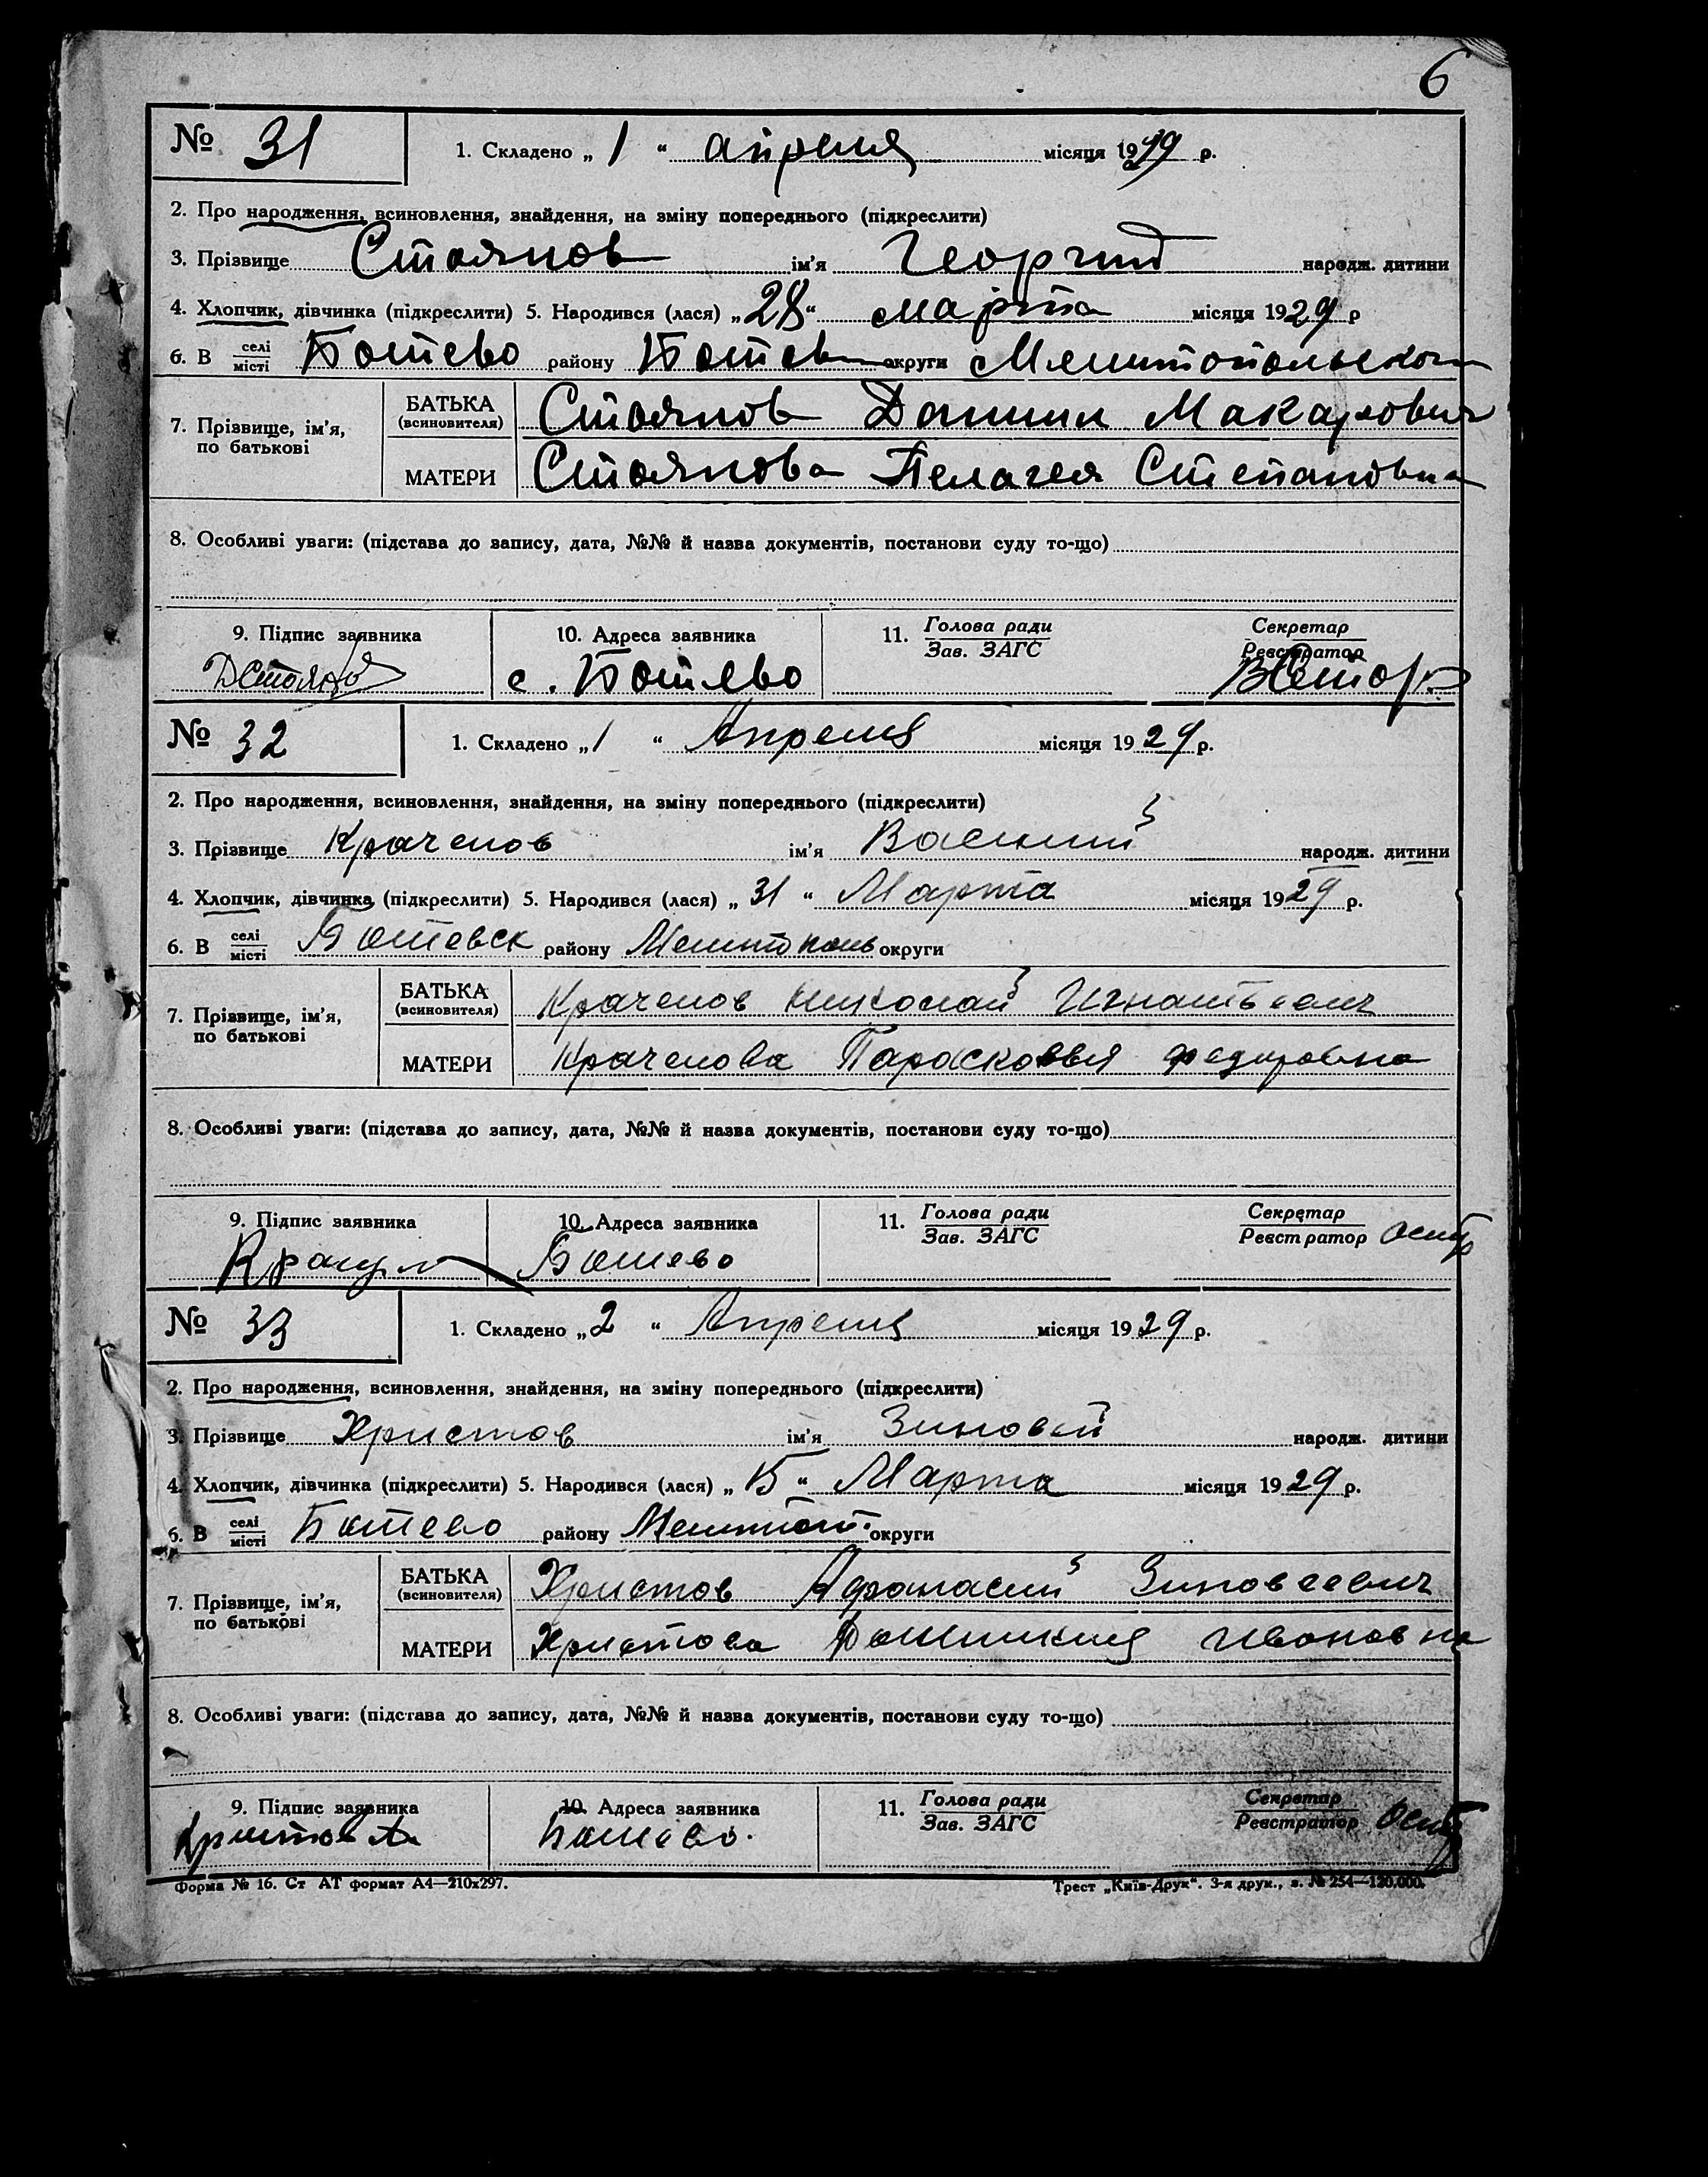 6
№ 31 1. Складено „ 1 “ апреля місяця 1929 р.
2. Про народження, всиновлення, знайдення, на зміну попереднього (підкреслити)
3. Прізвище Стоянов ім’я Георгий народж. дитини
4. Хлопчик, дівчинка (підкреслити) 5. Народився (лася) „ 28 “ марта місяця 1929 р
6. В селі місті Ботево району Ботев округи Мелитопольского
7. Прізвище, ім’я, по батькові БАТЬКА (всиновителя) Стоянов Даниил Макарович
МАТЕРИ Стоянова Пелагея Степановна
8. Особливі уваги: (підстава до запису, дата, №№ й назва документів, постанови суду то-що)
9. Підпис заявника 10. Адреса заявника 11. Голова ради Зав. ЗАГС Секретар Реєстратор
ДСтоянов с. Ботево
№ 32 1. Складено „ 1 “ Апреля місяця 1929 р.
2. Про народження, всиновлення, знайдення, на зміну попереднього (підкреслити)
3. Прізвище Крачелов ім’я Василий народж. дитини
4. Хлопчик, дівчинка (підкреслити) 5. Народився (лася) „ 31 “ Марта місяця 1929 р.
6. В селі місті Ботевск району Мелитополь округи
7. Прізвище, ім’я, по батькові БАТЬКА (всиновителя) Крачелов Николай Игнатьевич
МАТЕРИ Крачелова Парасковья Федировна
8. Особливі уваги: (підстава до запису, дата, №№ й назва документів, постанови суду то-що)
9. Підпис заявника 10. Адреса заявника 11. Голова ради Зав. ЗАГС Секретар Реєстратор
Ботево
№ 33 1. Складено „ 2 “ Апреля місяця 1929 р.
2. Про народження, всиновлення, знайдення, на зміну попереднього (підкреслити)
3. Прізвище Христов ім’я Зиновей народж. дитини
4. Хлопчик, дівчинка (підкреслити) 5. Народився (лася) „ 15 “ Марта місяця 1929 р.
6. В селі місті Ботево району Мелитоп. округи
7. Прізвище, ім’я, по батькові БАТЬКА (всиновителя) Христов Афанасий Зиновеевич
МАТЕРИ Христова Ивановна
8. Особливі уваги: (підстава до запису, дата, №№ й назва документів, постанови суду то-що)
9. Підпис заявника 10. Адреса заявника 11. Голова ради Зав. ЗАГС Секретар Реєстратор
Христов А Ботево.
Форма № 16. Ст АТ формат А4—210х297. Трест „Київ-Друк“. 3-я друк., з. № 254—120.000.